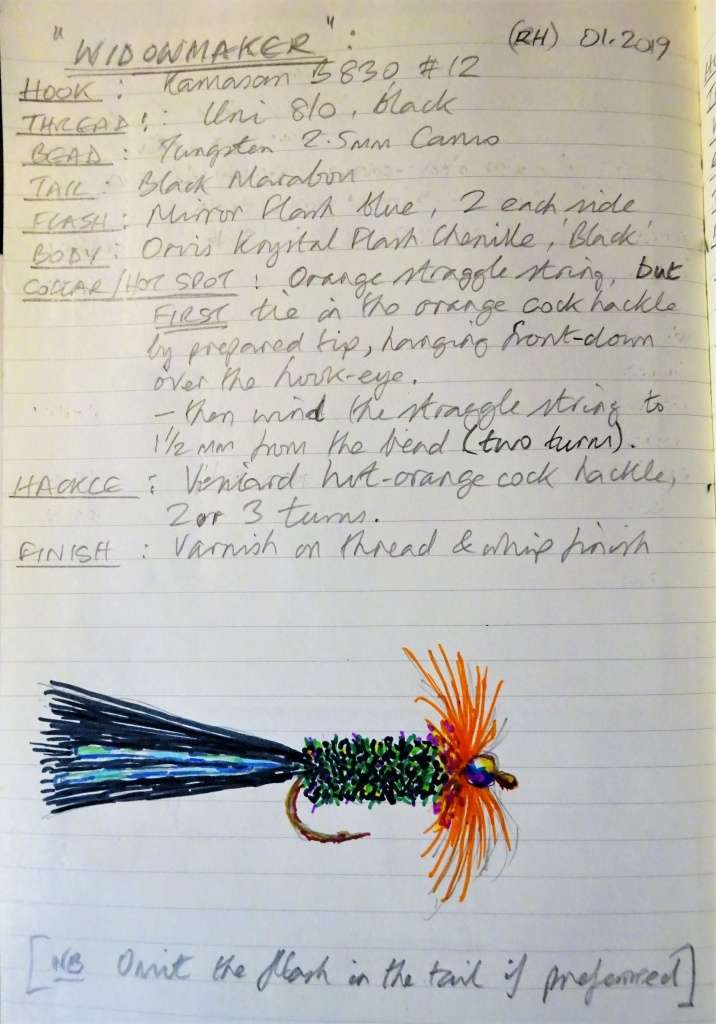 "WIDOWMAKER":
(RH) 01.2019
HOOK : Kamasan B830, #12
THREAD : Uni 8/0, Black
BEAD : Tungsten 2.5mm Camo
TAIL : Black Marabou
FLASH : Mirror Flash blue, 2 each side
BODY : Orvis Krystal Flash Chenille, 'Black'
COLLAR/HOT SPOT : Orange straggle string, but
FIRST tie in the orange cock hackle
by prepared tip, hanging front-down
over the hook-eye.
– then wind the straggle string to
1½ mm from the bead (two turns).
HACKLE : Veniard hot-orange cock hackle,
2 or 3 turns.
FINISH : Varnish on thread & whip finish
[NB Omit the flash in the tail if preferred]